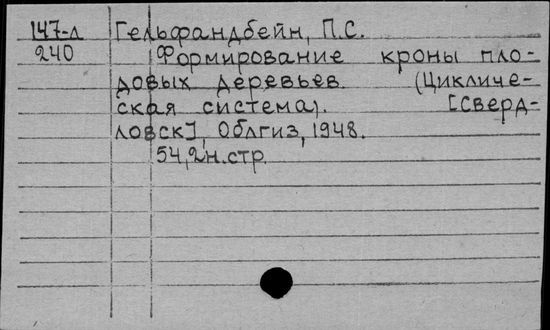 147-д Гельфандбейн, П.С.
240 Формирование кроны пло-
довых деревьев. (Цикличе-
ская система). [Сверд-
ловск], Облгиз, 1948.
54,2н.стр.